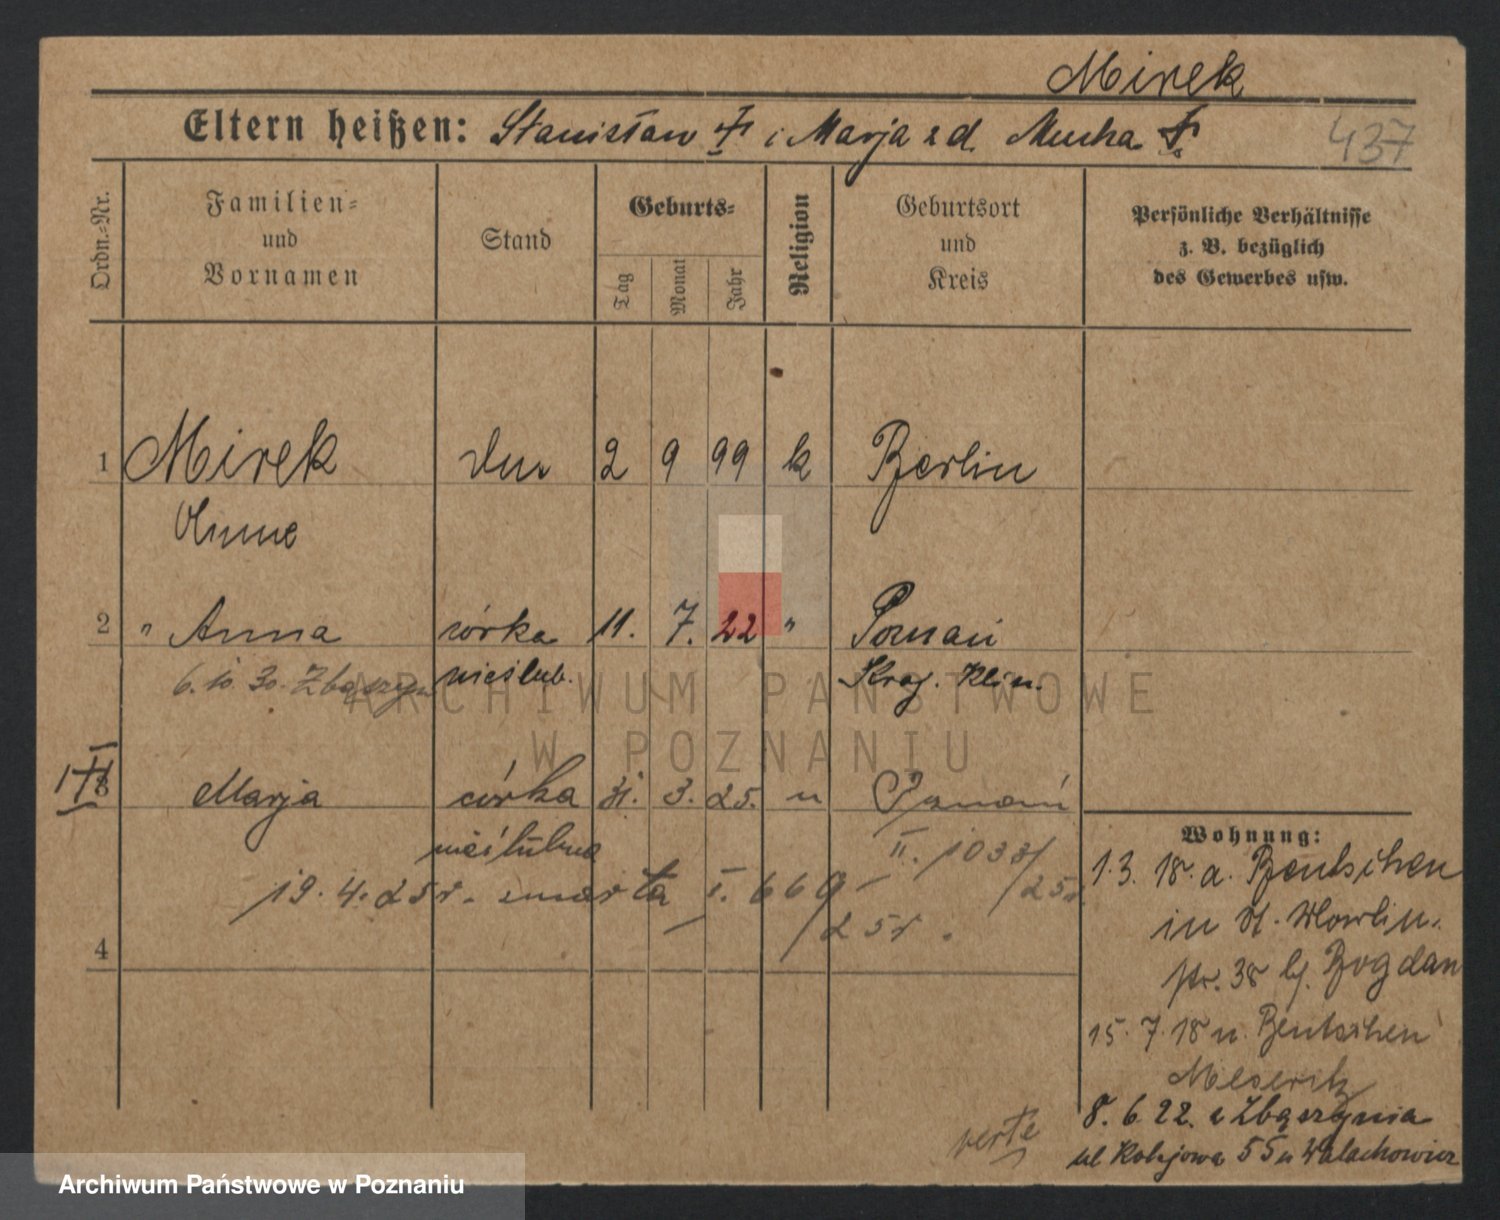 Mirek
Eltern heißen: Stanisław † i Marja z d. Mucha †
437
Ordn.-Nr.
Familien- und Vornamen
Stand
Geburts-
Tag
Monat
Jahr
Religion
Geburtsort und Kreis
Persönliche Verhältnisse z. B. bezüglich des Gewerbes usw.
1 Mirek 2 9 99 k Berlin
Anne
2 " Anna córka 11. 7. 22 " Poznań
6. 10. 30. Zbąszyń nieślub. Krag. Klin.
3 Marja córka 31. 3. 25. " Poznań
nieślubna II. 1033/25r.
19. 4. 25r. zmarła I. 669/25r.
4
Wohnung:
1.3. 18. a. Bentschen
in
str. 38 b/. Bogdan
15. 7. 18 n. Bentschen
Meseritz
8. 6. 22. z Zbąszynia
ul Kolejowa 55 u Walachowicz
verte
ARCHIWUM PAŃSTWOWE
W POZNANIU
Archiwum Państwowe w Poznaniu